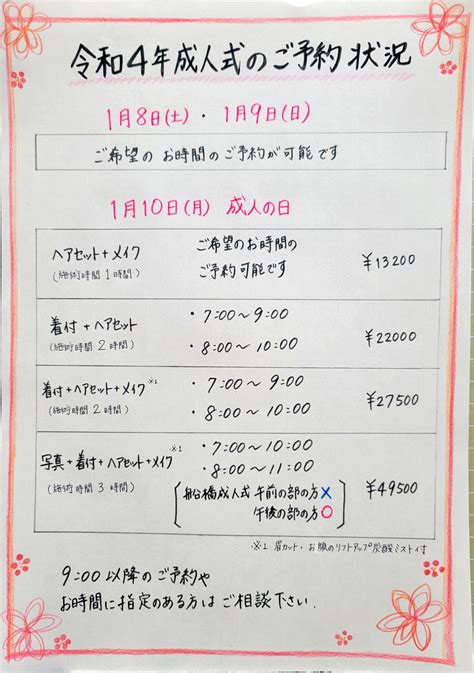 令和4年成人式のご予約状況
1月8日(土)・1月9日(日)
ご希望の お時間の ご予約が可能です
1月10日(月) 成人の日
ヘアセット+メイク
(施術時間1時間)
ご希望のお時間の
ご予約可能です
¥13200
着付+ヘアセット
(施術時間2時間)
・7:00〜9:00
・8:00〜10:00
¥22000
着付+ヘアセット+メイク※1
(施術時間2時間)
・7:00〜9:00
・8:00〜10:00
¥27500
写真+着付+ヘアセット+メイク※1
(施術時間3時間)
・7:00〜10:00
・8:00〜11:00
船橋成人式 午前の部の方×
午後の部の方○
¥49500
※1 眉カット・お顔のリフトアップ炭酸ミスト付
9:00以降のご予約や
お時間に指定のある方はご相談下さい.